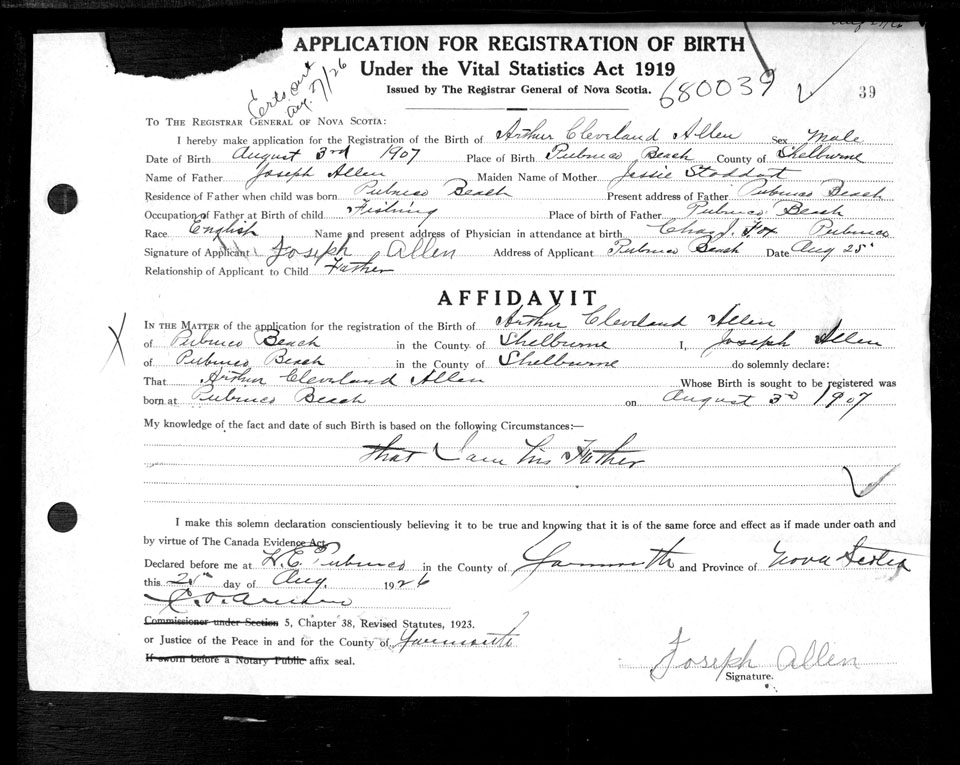 APPLICATION FOR REGISTRATION OF BIRTH
Under the Vital Statistics Act 1919
Issued by The Registrar General of Nova Scotia.
680039
39
Aug 27/26
TO THE REGISTRAR GENERAL OF NOVA SCOTIA:
I hereby make application for the Registration of the Birth of Arthur Cleveland Allen Sex Male
Date of Birth August 3rd 1907 Place of Birth Pubnico Beach County of Shelburne
Name of Father Joseph Allen Maiden Name of Mother Jessie Stoddart
Residence of Father when child was born Pubnico Beach Present address of Father Pubnico Beach
Occupation of Father at Birth of child Fishing Place of birth of Father Pubnico Beach
Race English Name and present address of Physician in attendance at birth Chas J. Fox Pubnico
Signature of Applicant Joseph Allen Address of Applicant Pubnico Beach Date Aug 25
Relationship of Applicant to Child Father
AFFIDAVIT
IN THE MATTER of the application for the registration of the Birth of Arthur Cleveland Allen
of Pubnico Beach in the County of Shelburne I, Joseph Allen
of Pubnico Beach in the County of Shelburne do solemnly declare:
That Arthur Cleveland Allen Whose Birth is sought to be registered was
born at Pubnico Beach on August 3rd 1907
My knowledge of the fact and date of such Birth is based on the following Circumstances:—
that I am his Father
I make this solemn declaration conscientiously believing it to be true and knowing that it is of the same force and effect as if made under oath and
by virtue of The Canada Evidence Act.
Declared before me at W.E. Pubnico in the County of Yarmouth and Province of Nova Scotia
this 25th day of Aug. 1926
Commissioner under Section 5, Chapter 38, Revised Statutes, 1923.
or Justice of the Peace in and for the County of Yarmouth
If sworn before a Notary Public affix seal.
Joseph Allen
Signature.